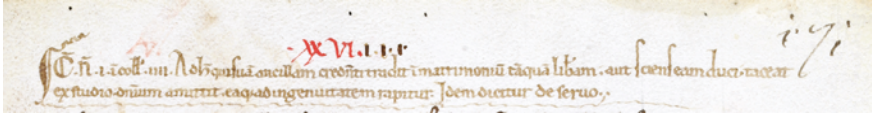 XXVI. i i i
C. ñ. i. i coll. iiii. Ad h̄ qui suā ancillam credēti tradit i matrimoniū tāquā lib̄am. aut sciens eam duci. taceat
ex studio. dn̄ium amittit. ea q̄ ad ingenuitatem rapitur. Idem dicitur de seruo.